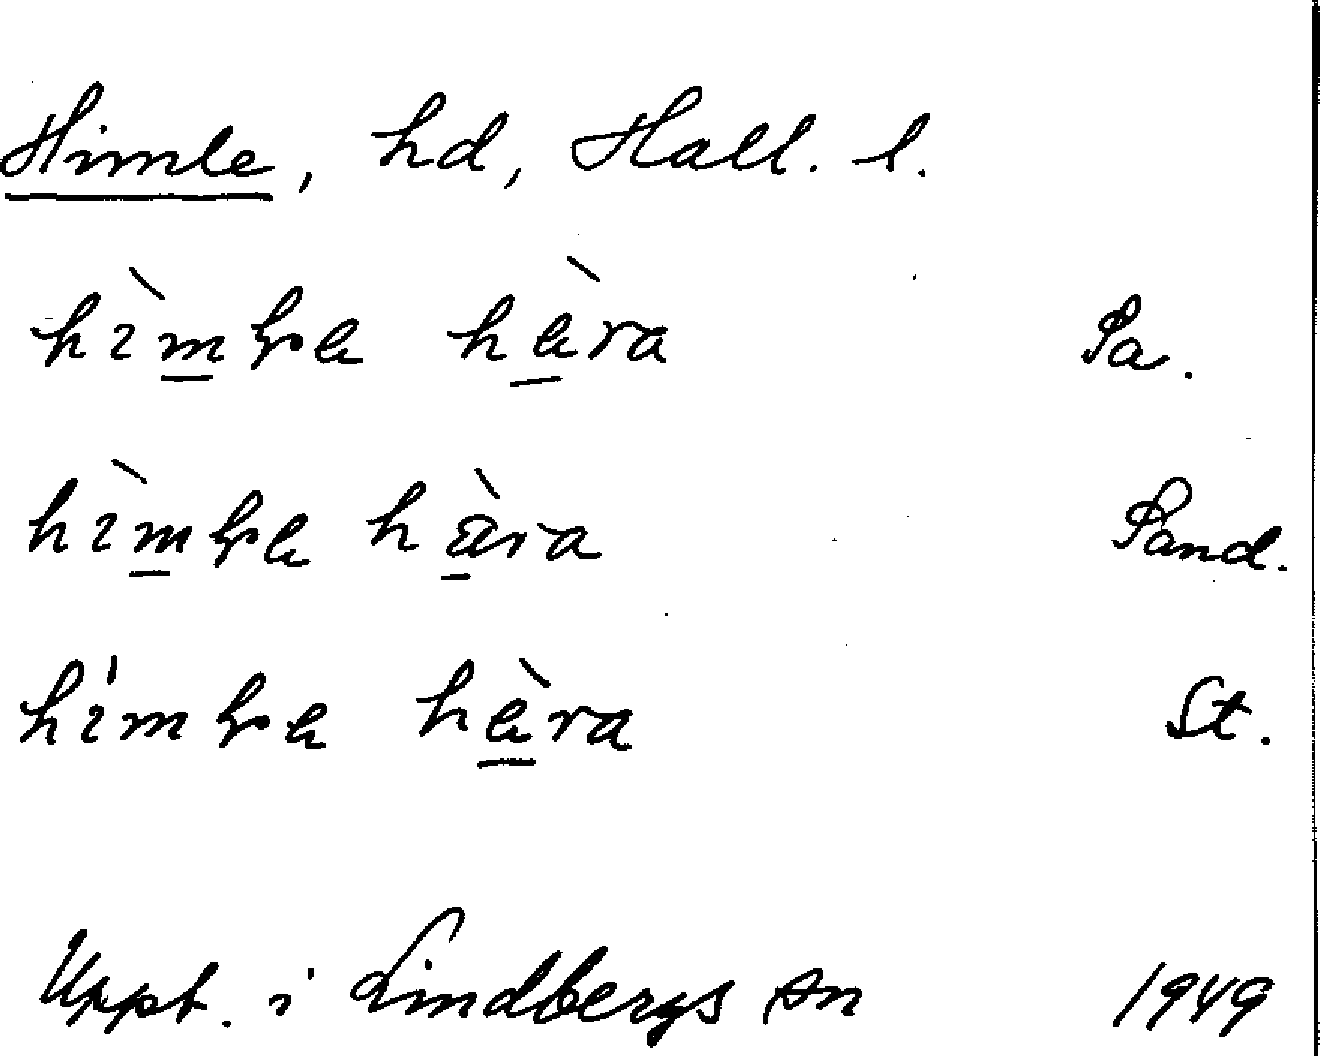 Himle, hd, Hall. l.
hìmba hàra Pa.
hìmba hàra Pand.
hímba hàra St.
Uppt. i Lindbergs sn 1949